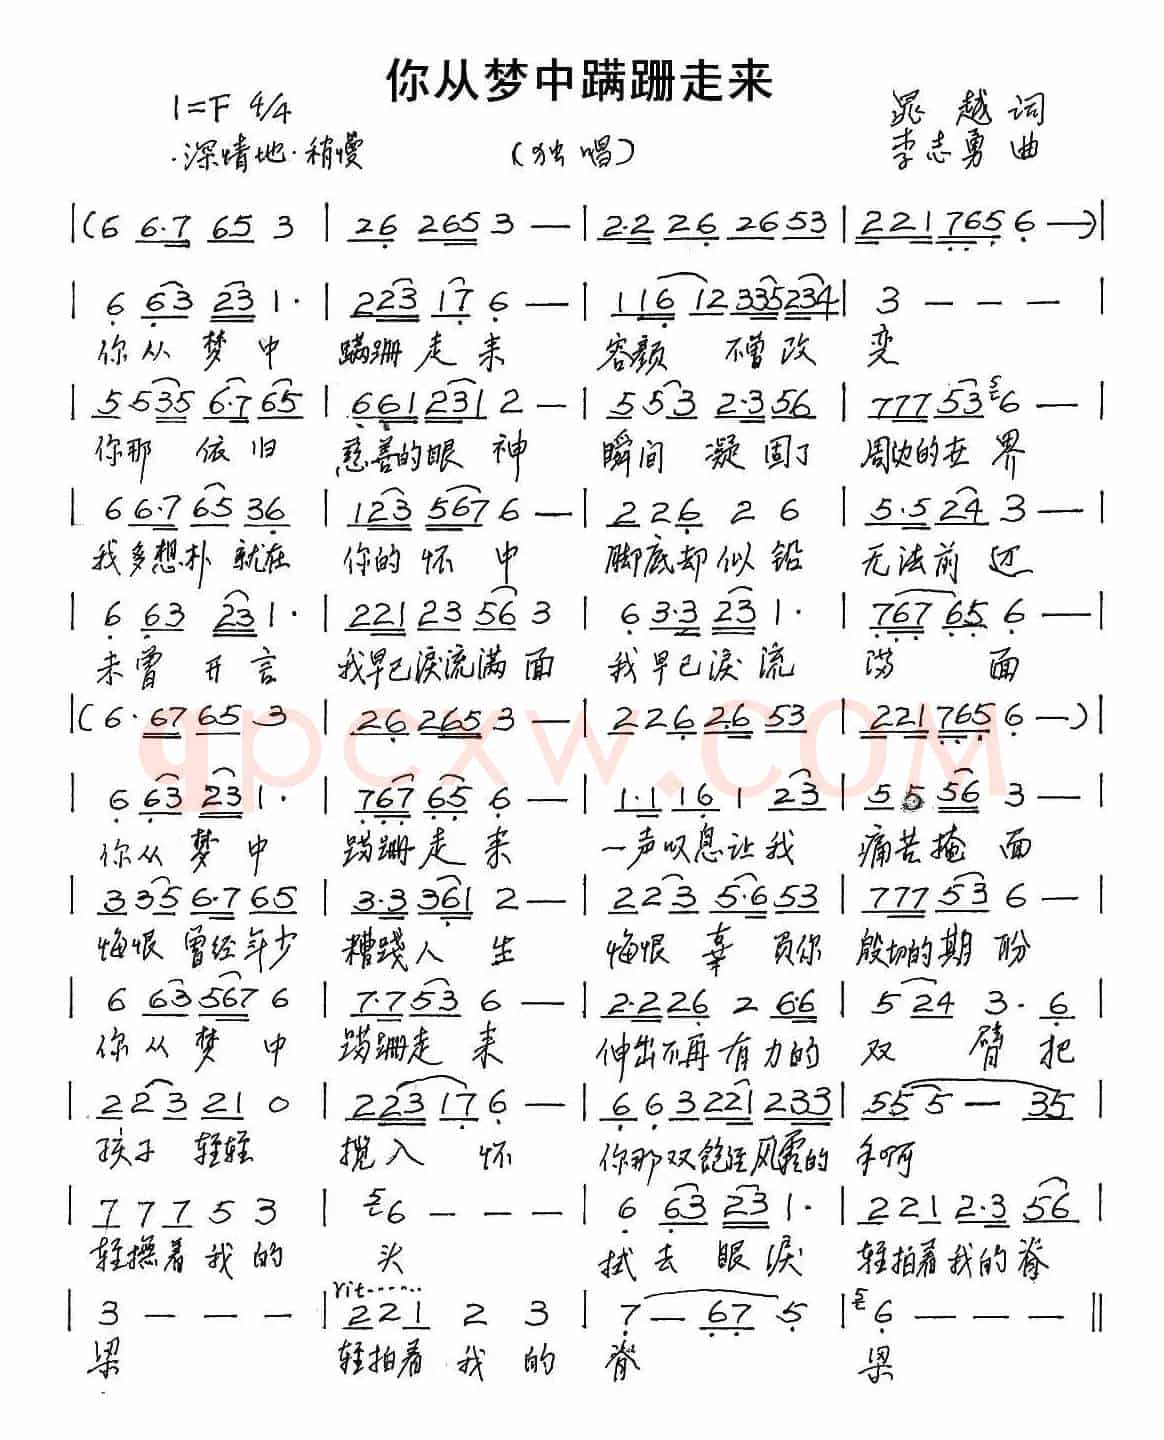 你从梦中蹒跚走来
1=F 4/4
晁越词
深情地·稍慢
(独唱)
李志勇曲
|(6 6·7 65 3 | 26 265 3 — | 2·2 26 2653 | 221 765 6 —)|
| 6 63 23 1· | 223 17 6 — | 116 12 335 234 | 3 — — — |
你从梦中 蹒跚走来 容颜不曾改变
| 5 535 6·7 65 | 661 231 2 — | 5 53 2·3 56 | 777 53 56 — |
你那依旧 慈善的眼神 瞬间凝固了 周边的世界
| 6 6·7 65 36 | 123 567 6 — | 2 26 2 6 | 5·5 24 3 — |
我多想扑就在 你的怀中 脚底却似铅 无法前迈
| 6 63 23 1· | 221 23 56 3 | 6 3·3 23 1· | 767 65 6 — |
未曾开言 我早已淚流满面 我早已淚流 满面
|(6· 67 65 3 | 26 265 3 — | 2 26 2·6 53 | 221 765 6 —)|
qpcxw.COM
| 6 63 23 1· | 767 65 6 — | 1·1 16 1 23 | 5 5 56 3 — |
你从梦中 蹒跚走来 一声叹息让我 痛苦掩面
| 3 35 6·7 65 | 3·3 361 2 — | 2 23 5·6 53 | 777 53 6 — |
悔恨曾经年少 糟踐人生 悔恨辜负你 殷切的期盼
| 6 63 567 6 | 7·7 53 6 — | 2·2 26 2 6·6 | 5 24 3· 6 |
你从梦中 蹒跚走来 伸出不再有力的 双臂把
| 2 23 21 0 | 223 17 6 — | 6 6 3 221 233 | 55 5 — 35 |
孩子轻轻 揽入怀 你那双饱经风霜的 手啊
| 7 7 7 5 3 | 56 — — — | 6 63 23 1· | 2 21 2·3 56 |
轻撫着我的 头 拭去眼淚 轻拍着我的脊
rit......
| 3 — — — | 2 2 1 2 3 | 7 — 67 5 | 56 — — — ‖
梁 轻拍着我的 脊 梁